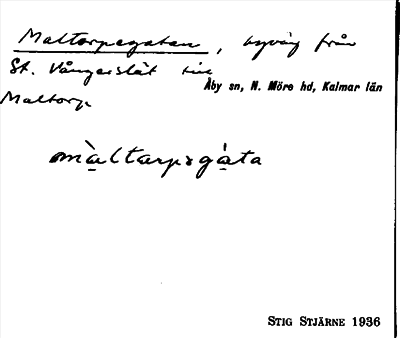 Maltorpegatan, byväg från
St. Vångerslät till
Åby sn, N. Möre hd, Kalmar län
Maltorp
màltarpsgáta
STIG STJÄRNE 1936